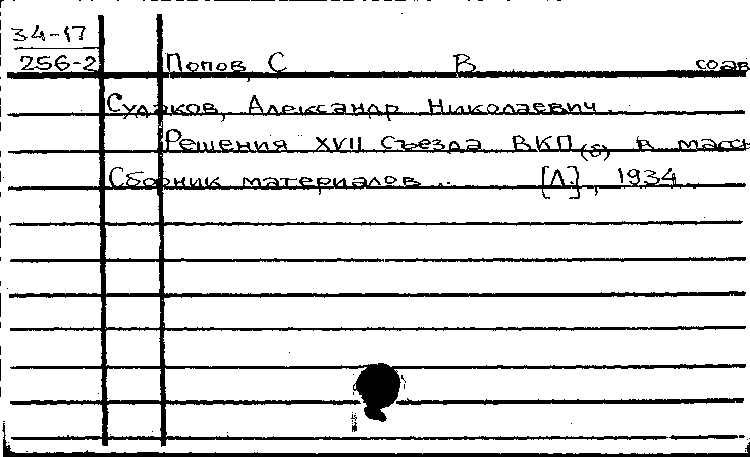 34-17
256-2 Попов, С В соав
Судаков, Александр Николаевич.
Решения XVII съезда ВКП(б) в массы
Сборник материалов... [Л.], 1934.